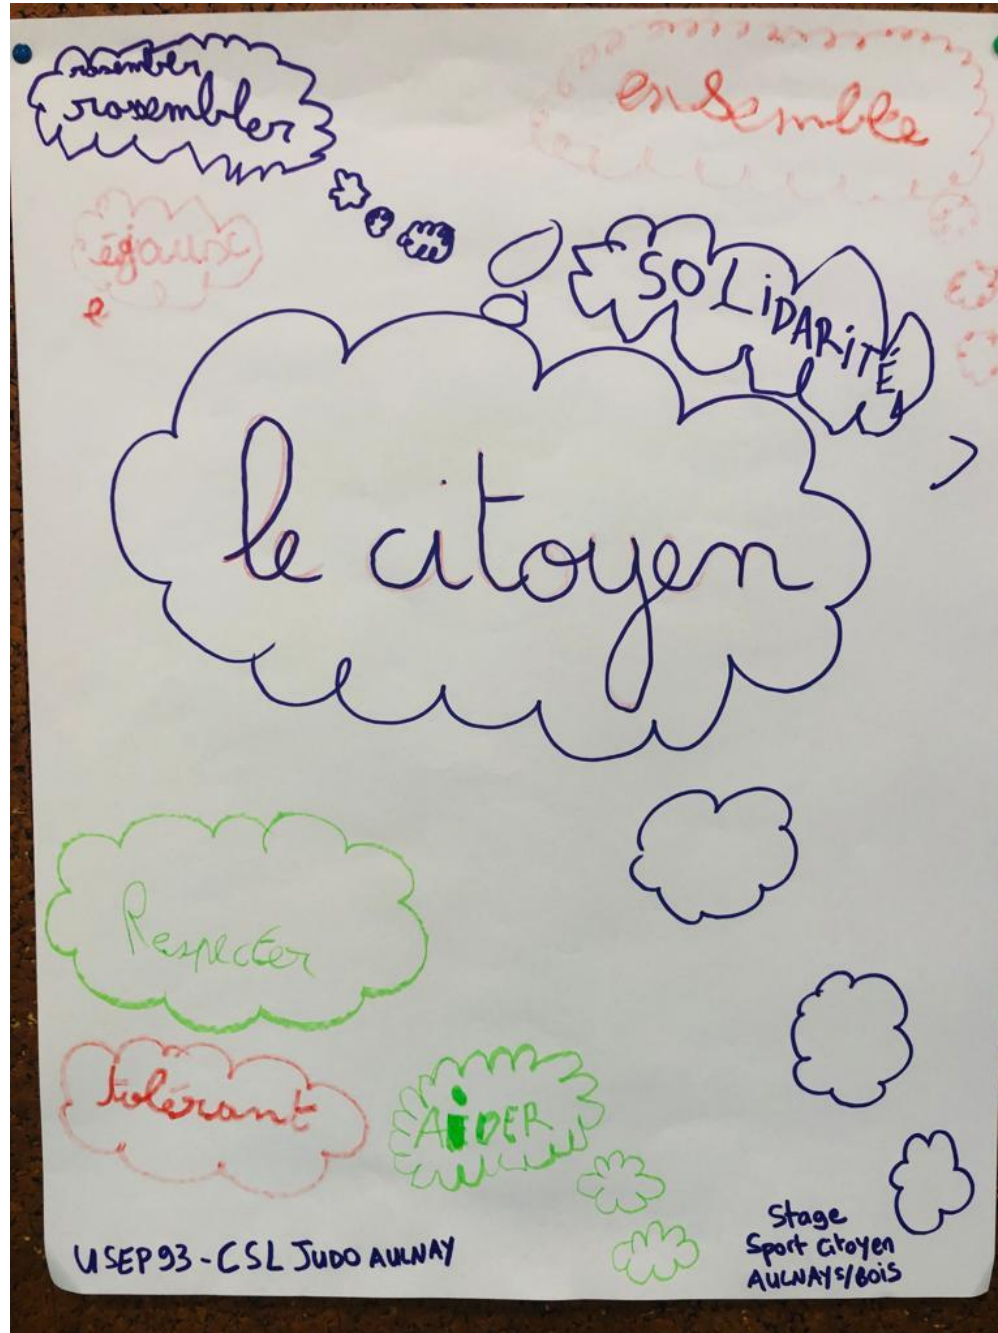 rasembler
rassembler
ensemble
égaux
e
SOLIDARITÉ
le citoyen
Respecter
tolérant
AIDER
USEP93-CSL JUDO AULNAY
Stage
Sport Citoyen
AULNAY S/BOIS